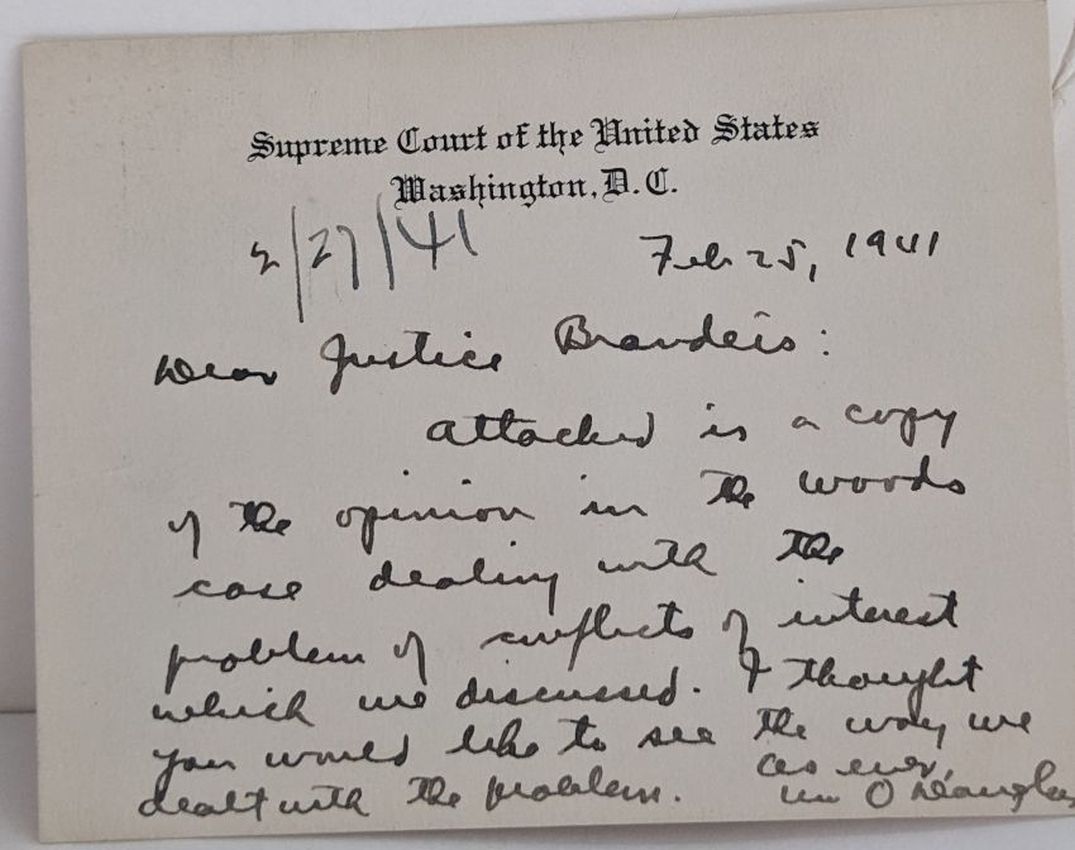 Supreme Court of the United States
Washington, D.C.
2/27/41
Feb 25, 1941
Dear Justice Brandeis:
Attached is a copy
of the opinion in the Woods
case dealing with the
problem of conflicts of interest
which we discussed. I thought
you would like to see the way we
dealt with the problem.
As ever,
Wm O Douglas